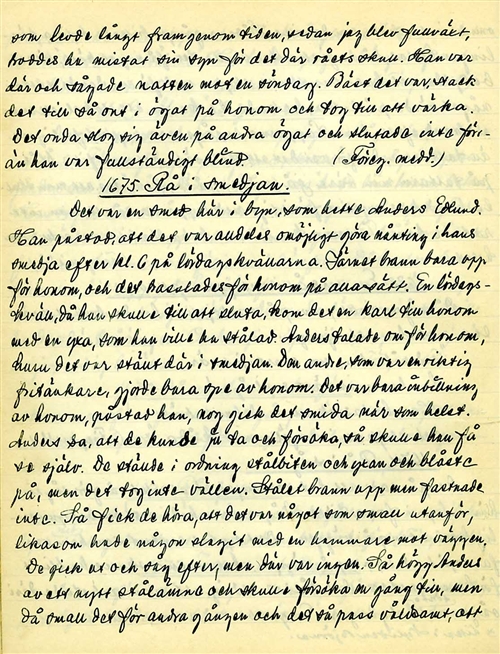 som levde långt fram genom tiden, sedan jag blev fullväxt,
troddes ha mistat sin syn för det där råets skull. Han var
där och sågade natten mot en söndag. Bäst det var, stack
det till så ont i ögat på honom och tog till att värka.
Det onda slog sig även på andra ögat och slutade inte förr-
än han var fullständigt blind. (Föreg. medd.)
1675. Rå i smedjan.
Det var en smed här i byn, som hette Anders Edlund.
Han påstod, att det var alldeles omöjligt göra nånting i hans
smedja efter kl. 6 på lördagskvällarna. Järnet brann bara opp
för honom, och det trasslades för honom på alla sätt. En lördags-
kväll, då han skulle till att sluta, kom det en karl till honom
med en yxa, som han ville ha stålad. Anders talade om för honom,
huru det var ställt där i smedjan. Den andre, som var en riktig
fritänkare, gjorde bara spe av honom. Det var bara inbillning
av honom, påstod han, nog gick det smida när som helst.
Anders sa, att de kunde ju ta och försöka, så skulle han få
se själv. De ställde i ordning stålbiten och yxan och blåste
på, men det tog inte vällen. Stålet brann upp men fastnade
inte. Så fick de höra, att det var något som small utanför,
likasom hade någon slagit med en hammare mot väggen.
De gick ut och såg efter, men där var ingen. Så högg Anders
av ett nytt stålämne och skulle försöka en gång till, men
då small det för andra gången och det så pass våldsamt, att